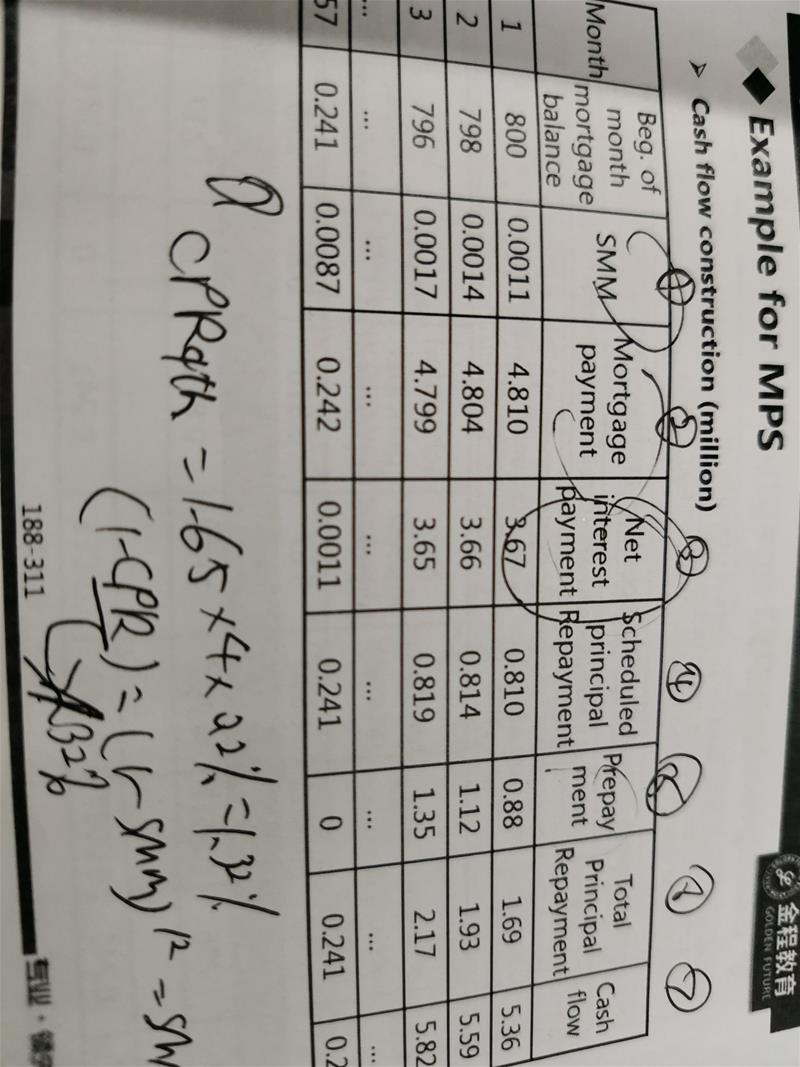 Example for MPS
金程教育
GOLDEN FUTURE
➢ Cash flow construction (million)
① ② ③ ④
Month Beg. of month mortgage balance SMM Mortgage payment Net interest payment Scheduled principal Repayment Prepay ment Total Principal Repayment Cash flow
1 800 0.0011 4.810 3.67 0.810 0.88 1.69 5.36
2 798 0.0014 4.804 3.66 0.814 1.12 1.93 5.59
3 796 0.0017 4.799 3.65 0.819 1.35 2.17 5.82
... ... ... ... ... ... ... ... ...
57 0.241 0.0087 0.242 0.0011 0.241 0 0.241 0.2
= 1.65 × 4 × 0.2% = 1.32%
(1-CPR) = (1-SMM)12 = SM
1.32%
188-311
专业·